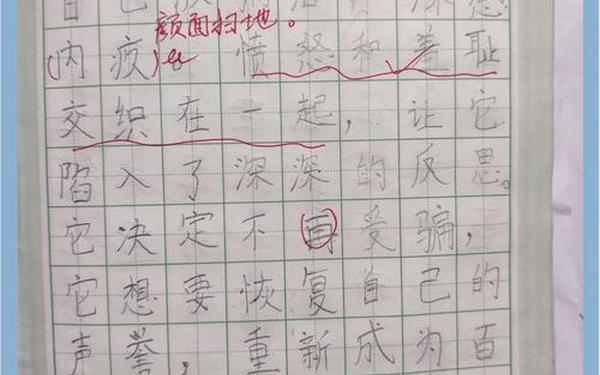 颜面扫地。
(内疚)愤怒和羞耻
交织在一起，让它
陷入了深深的反思。
它决定不再受骗，
它想要恢复自己的
声誉，重新成为百